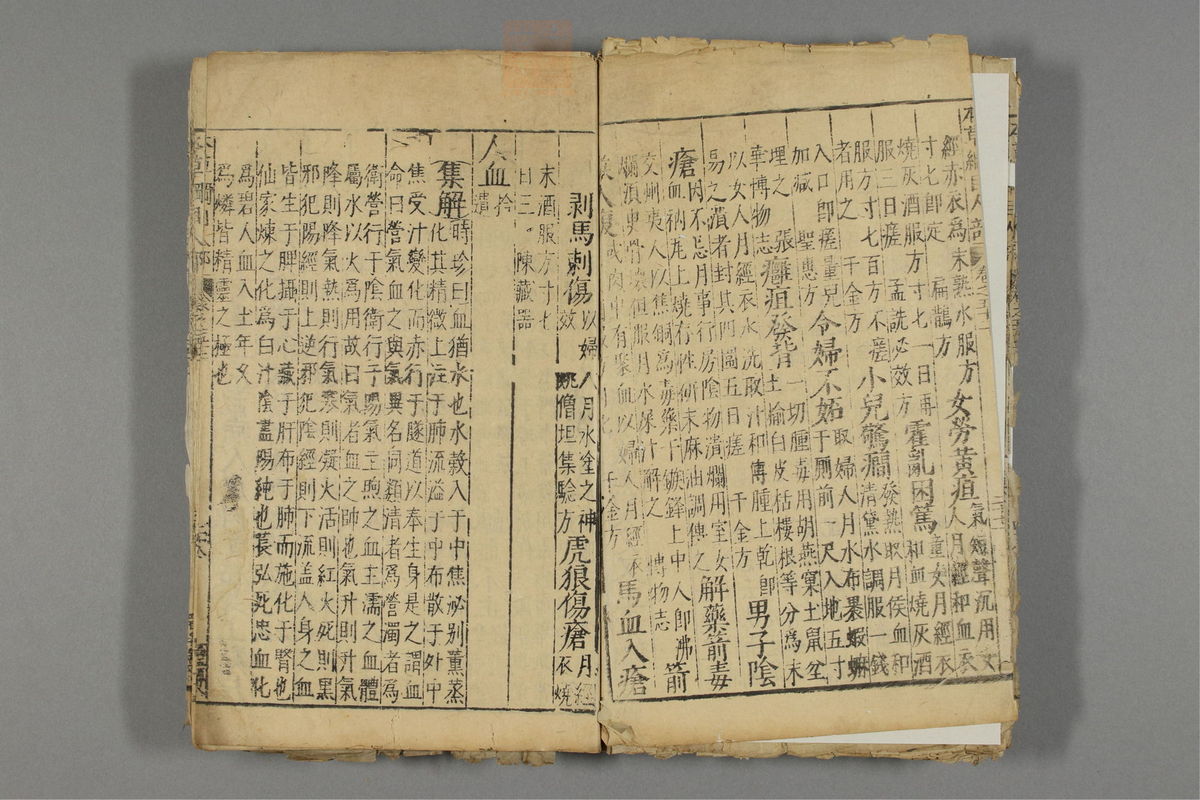 本草綱目人部 卷五十二
經赤衣爲末熟水服方 女勞黃疸氣短聲沉用女
寸七即定 扁鵲方 人月經和血衣
燒灰酒服方寸七一日再 霍亂困篤童女月經衣
服三日瘥 孟詵必效方 和血燒灰酒
服方寸七百方不瘥 小兒驚癇發熱取月候血和
者用之 千金方 清黛水調服一錢
入口即瘥量兒 令婦不妬取婦人月水布裹蝦蟇
加減 聖惠方 于厠前一尺入地五寸
埋之 張 癰疽發背一切腫毒用胡燕窠土鼠坌
華博物志 土榆白皮栝樓根等分爲末
以女人月經衣水洗取汁和傅腫上乾即 男子陰
易之潰者封其門圍五日瘥 千金方
瘡因不忌月事行房陰物潰爛用室女 解藥箭毒
血衲瓦上燒存性研末麻油調傅之
交州夷人以焦銅爲毒藥于鏃鋒上中人即沸 箭
爛須臾骨壞但服月水屎汁解之 博物志
入腹或肉中有聚血以婦人月經衣 馬血入瘡
千金方
剥馬刺傷以婦人月水塗之神 虎狼傷瘡月經
效 姚僧坦集驗方 衣燒
末酒服方寸七
日三 陳藏器
人血拾遺
集解時珍曰血猶水也水穀入于中焦泌別薰蒸
化其精微上注于肺流溢于中布散于外中
焦受汁變化而赤行于隧道以奉生身是之謂血
命曰營氣血之與氣異名同類清者爲營濁者爲
衛營行于陰衛行于陽氣主煦之血主濡之血體
屬水以火爲用故曰氣者血之帥也氣升則升氣
降則降氣熱則行氣寒則凝火活則紅火死則黑
邪犯陽經則上逆邪犯陰經則下流盖人身之血
皆生于脾攝于心藏于肝布于肺而施化于腎也
仙家煉之化爲白汁陰盡陽純也萇弘死忠血化
爲碧人血入土年久
爲燐皆精靈之極也